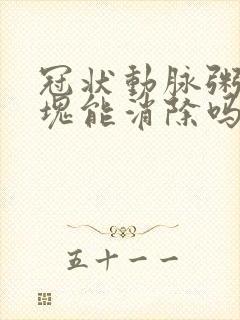 冠状動脉粥
塊能消除吗
五十一一